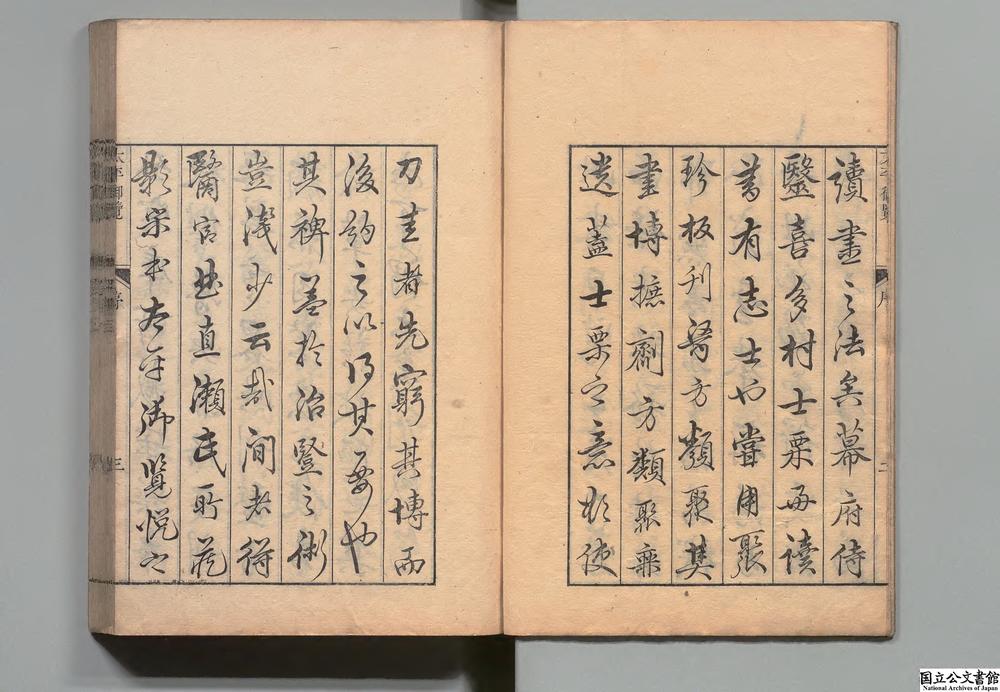 讀書之法矣幕府侍
毉喜多村士栗毎讀
書有志士也嘗用聚
珍板刋醫方類聚其
書博摭劑方類聚棄
遺蓋士栗之意欲使
刀圭者先窮其博而
後約之以得其要也
其裨益於治毉之術
豈淺少云哉間者得
醫官曲直瀨氏所藏
影宋本太平御覽悅之
太平御覽
序
二
太平御覽
序
三
国立公文書館
National Archives of Japan